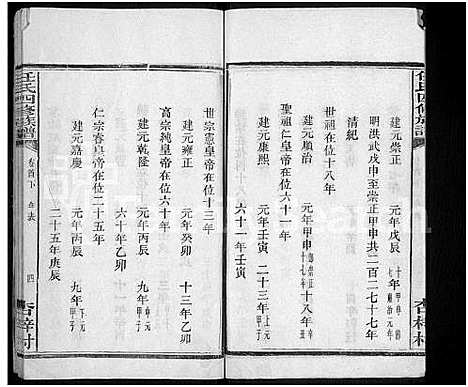 任氏四修族譜
建元崇正 元年戊辰
明洪武戊申至崇正甲申共二百七十七年
清紀
世祖在位十八年
建元順治 元年甲申 十八年辛丑
聖祖仁皇帝在位六十一年
建元康熙 元年壬寅 二十三年上元甲子
六十一年壬寅
世宗憲皇帝在位十三年
建元雍正 元年癸卯 十三年乙卯
高宗純皇帝在位六十年
建元乾隆 元年丙辰 九年中元甲子
六十年乙卯
仁宗睿皇帝在位二十五年
建元嘉慶 元年丙辰 九年下元甲子
二十五年庚辰
任氏四修族譜
卷首下
年表
四
杏梓村
杏梓村